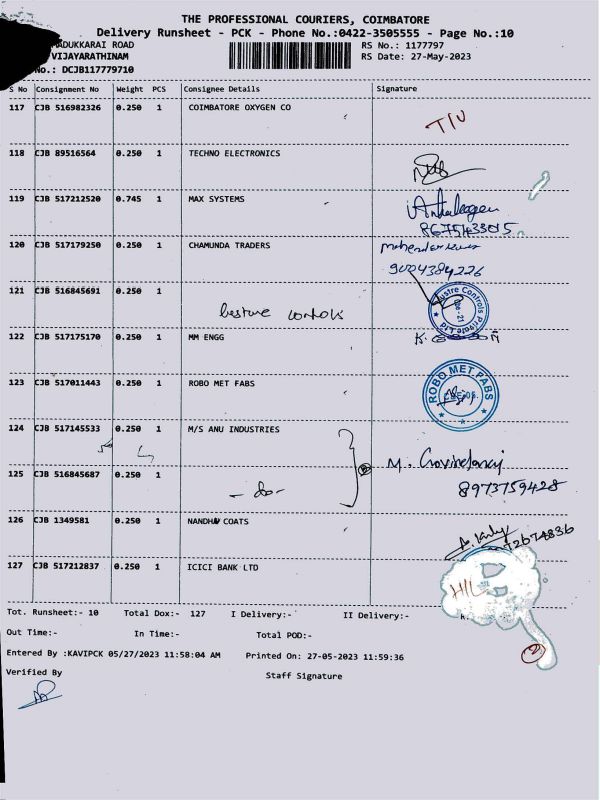 THE PROFESSIONAL COURIERS, COIMBATORE
Delivery Runsheet - PCK - Phone No.:0422-3505555 - Page No.:10
MADUKKARAI ROAD RS No.: 1177797
VIJAYARATHINAM RS Date: 27-May-2023
No.: DCJB117779710
S No Consignment No Weight PCS Consignee Details Signature
117 CJB 516982326 0.250 1 COIMBATORE OXYGEN CO
118 CJB 89516564 0.250 1 TECHNO ELECTRONICS
119 CJB 517212520 0.745 1 MAX SYSTEMS
8675433015
120 CJB 517179250 0.250 1 CHAMUNDA TRADERS
9004384226
121 CJB 516845691 0.250 1
controls
122 CJB 517175170 0.250 1 MM ENGG
123 CJB 517011443 0.250 1 ROBO MET FABS ROBO MET FABS
124 CJB 517145533 0.250 1 M/S ANU INDUSTRIES
M. Govindaraj
125 CJB 516845687 0.250 1 - do - 8973759428
126 CJB 1349581 0.250 1 NANDHU COATS
127 CJB 517212837 0.250 1 ICICI BANK LTD
Tot. Runsheet:- 10 Total Dox:- 127 I Delivery:- II Delivery:-
Out Time:- In Time:- Total POD:-
Entered By :KAVIPCK 05/27/2023 11:58:04 AM Printed On: 27-05-2023 11:59:36
Verified By Staff Signature